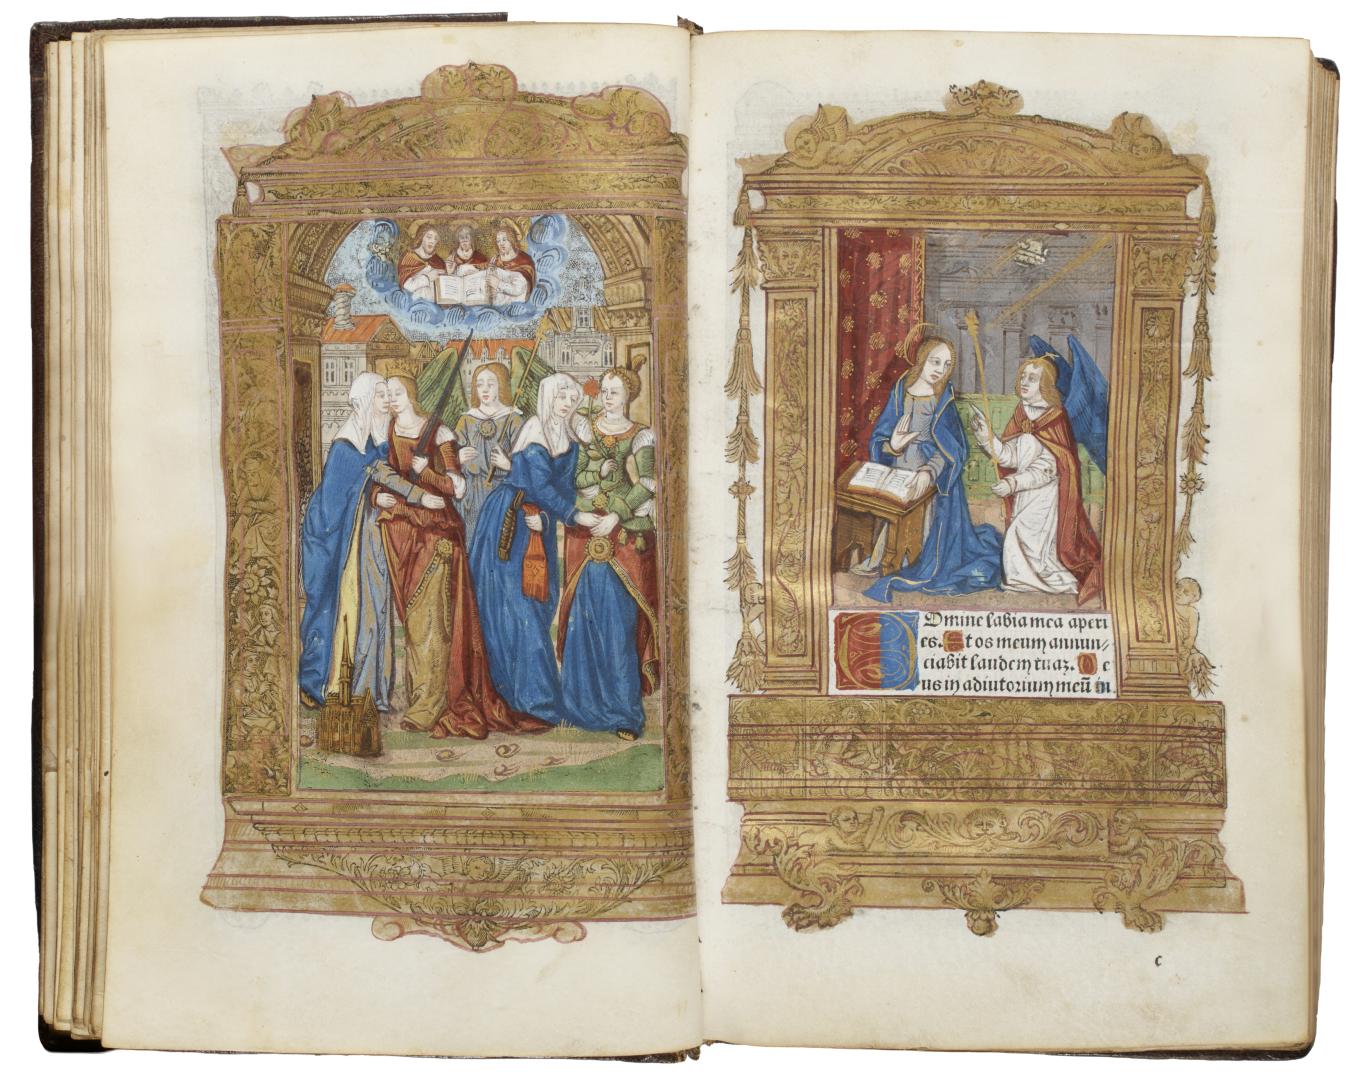 Omine labia mea aperi
es. Et os meum annun⸗
ciabit laudem tuaz. De
us in adiutorium meū in.
c